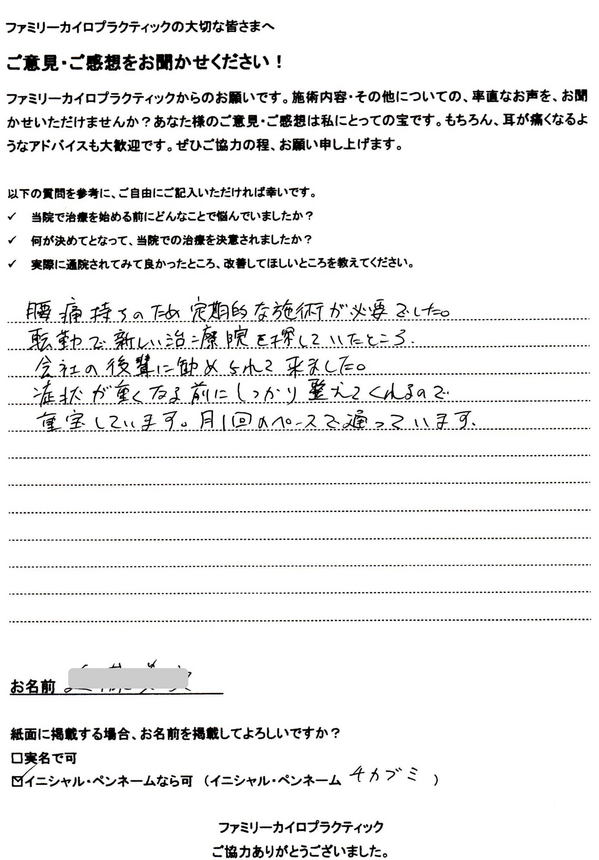 ファミリーカイロプラクティックの大切な皆さまへ
ご意見・ご感想をお聞かせください！
ファミリーカイロプラクティックからのお願いです。施術内容・その他についての、率直なお声を、お聞
かせいただけませんか？あなた様のご意見・ご感想は私にとっての宝です。もちろん、耳が痛くなるよ
うなアドバイスも大歓迎です。ぜひご協力の程、お願い申し上げます。
以下の質問を参考に、ご自由にご記入いただければ幸いです。
✓ 当院で治療を始める前にどんなことで悩んでいましたか？
✓ 何が決めてとなって、当院での治療を決意されましたか？
✓ 実際に通院されてみて良かったところ、改善してほしいところを教えてください。
腰痛持ちのため定期的な施術が必要でした。
転勤で新しい治療院を探していたところ、
会社の後輩に勧められて来ました。
症状が重くなる前にしっかり整えてくれるので
重宝しています。月1回のペースで通っています。
お名前
紙面に掲載する場合、お名前を掲載してよろしいですか？
□実名で可
☑イニシャル・ペンネームなら可 （イニシャル・ペンネーム チカブミ ）
ファミリーカイロプラクティック
ご協力ありがとうございました。